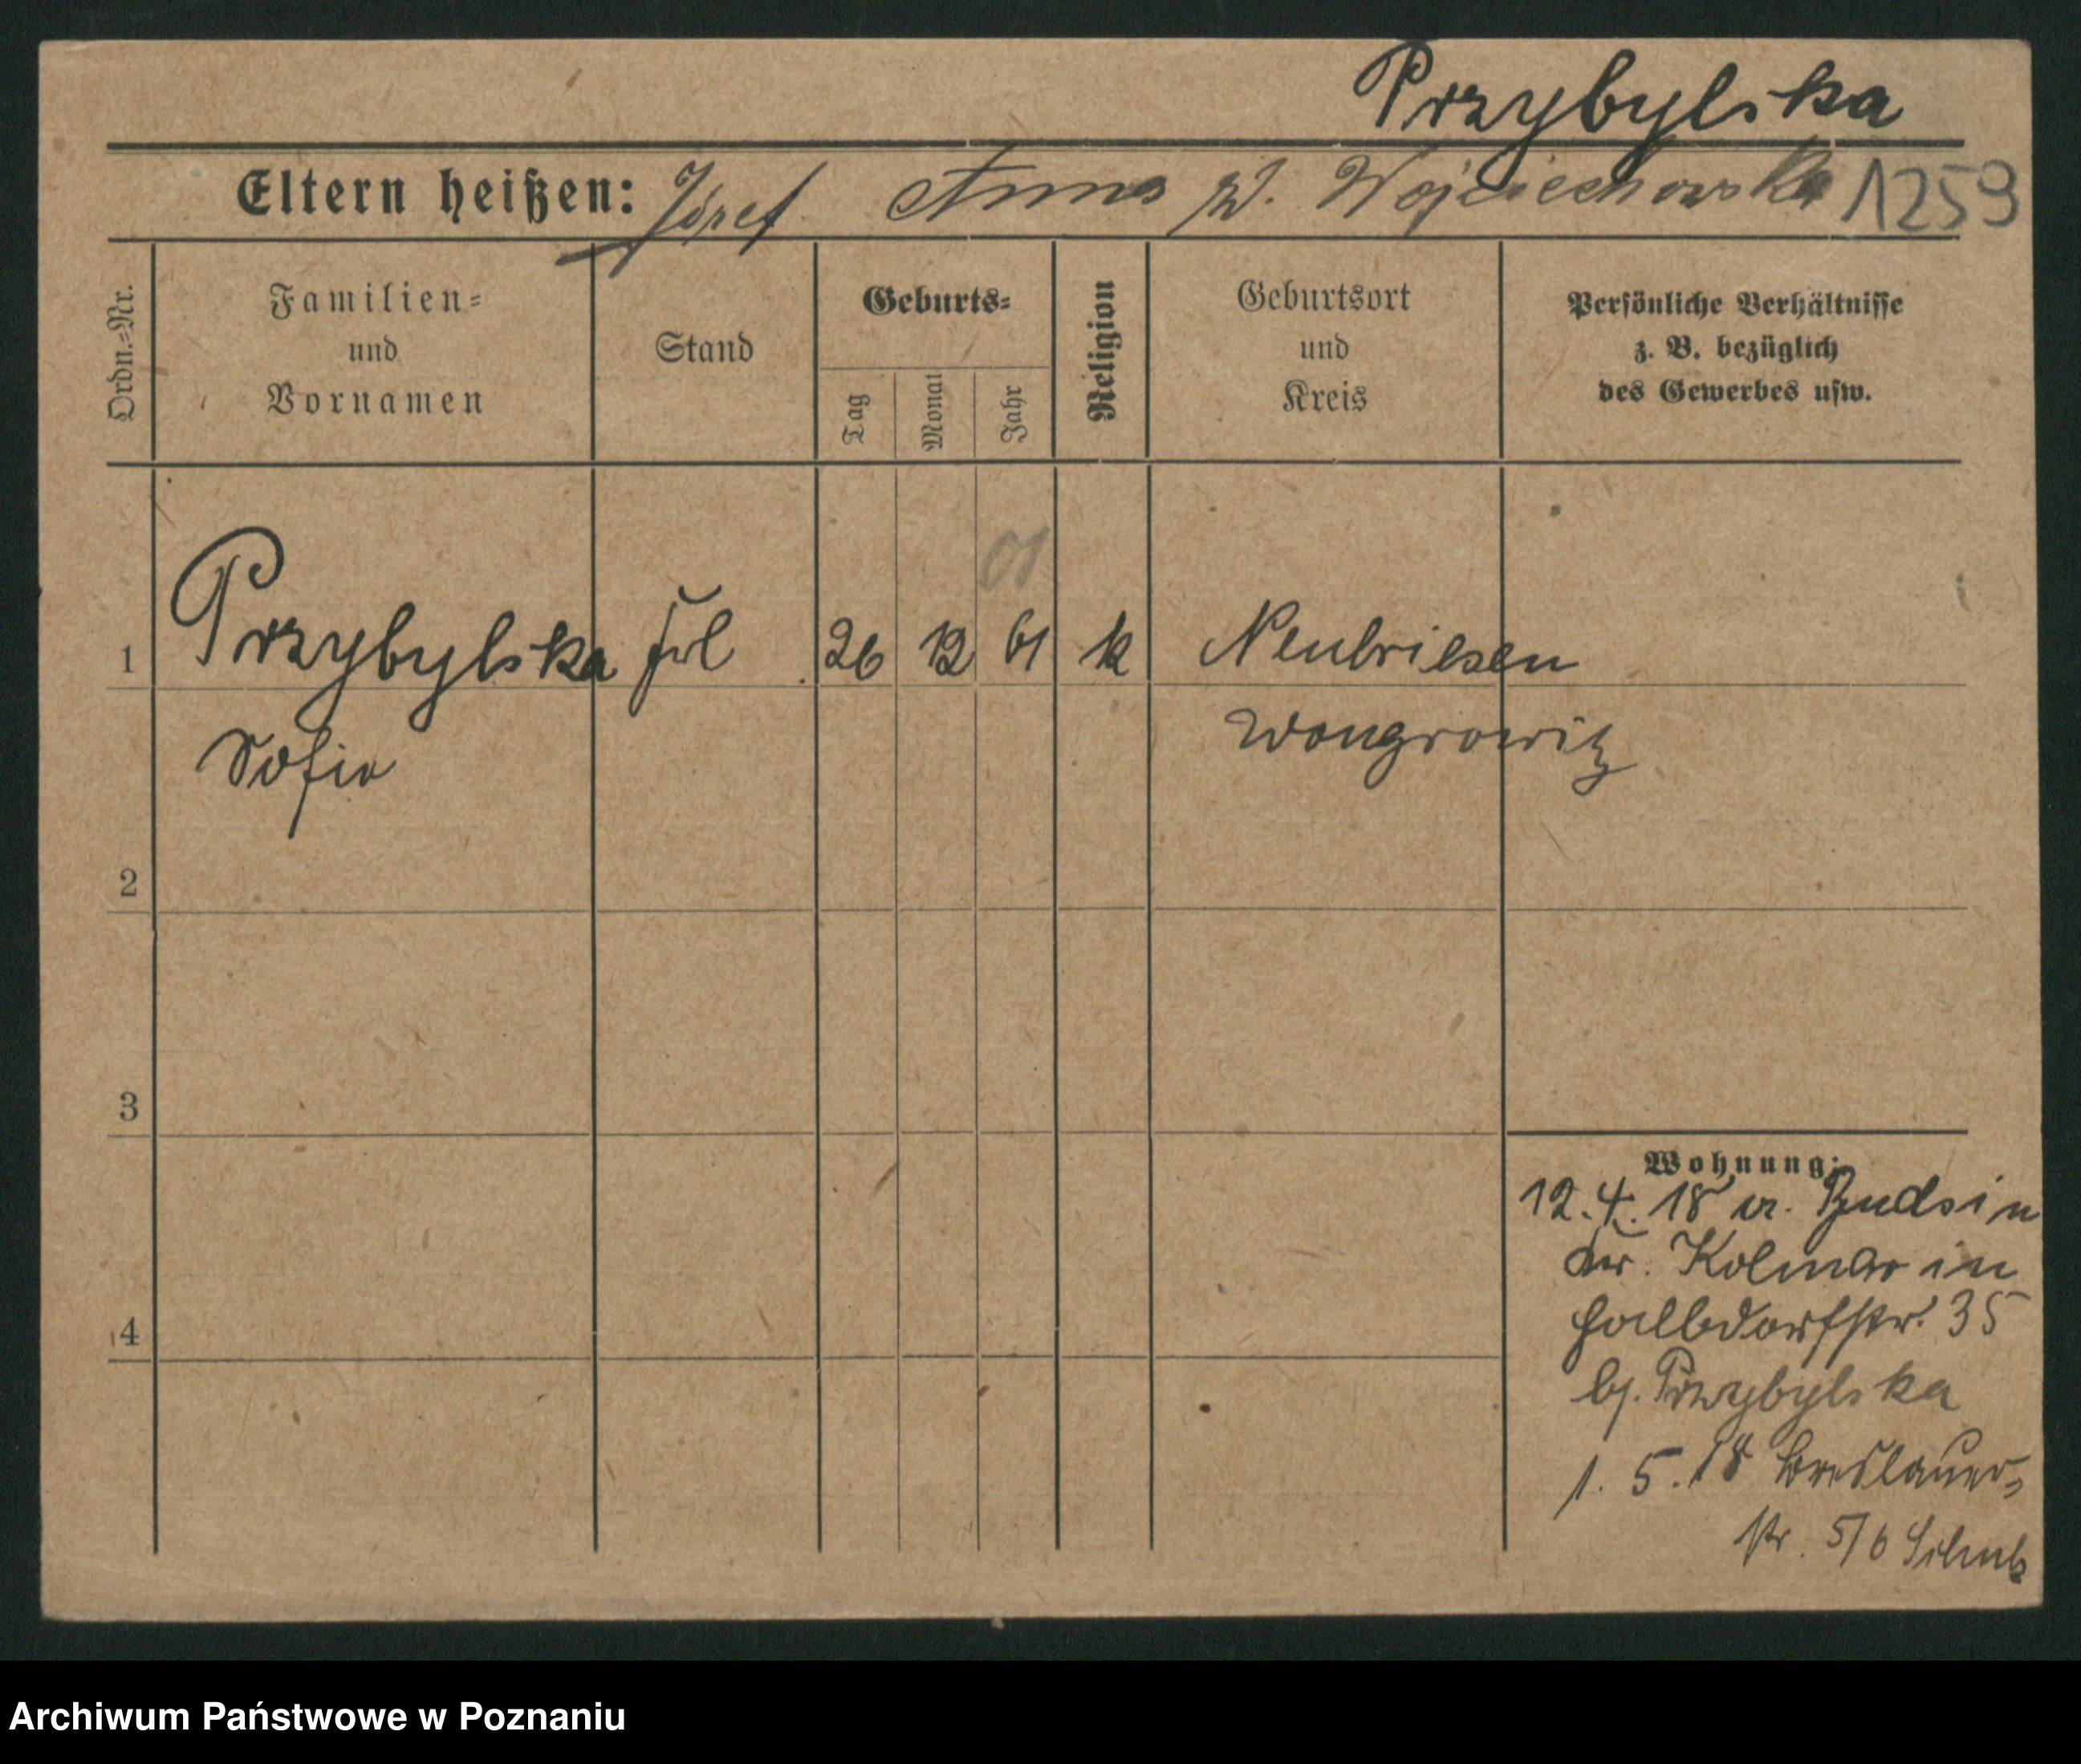 Przybylska
Eltern heißen: Józef Anna zd. Wojciechowska 1259
Ordn.=Nr.
Familien=
und
Vornamen
Stand
Geburts=
Tag
Monat
Jahr
Religion
Geburtsort
und
Kreis
Persönliche Verhältnisse
z. B. bezüglich
des Gewerbes usw.
01
1 Przybylska frl 26 12 61 k Neubriesen
Sofia Wongrowitz
2
3
4
Wohnung:
12.4.18 Budsin
Kr. Kolmar in
Halbdorfstr. 35
bj. Przybylska
1. 5. 18 Breslauer=
str. 5/6
Archiwum Państwowe w Poznaniu